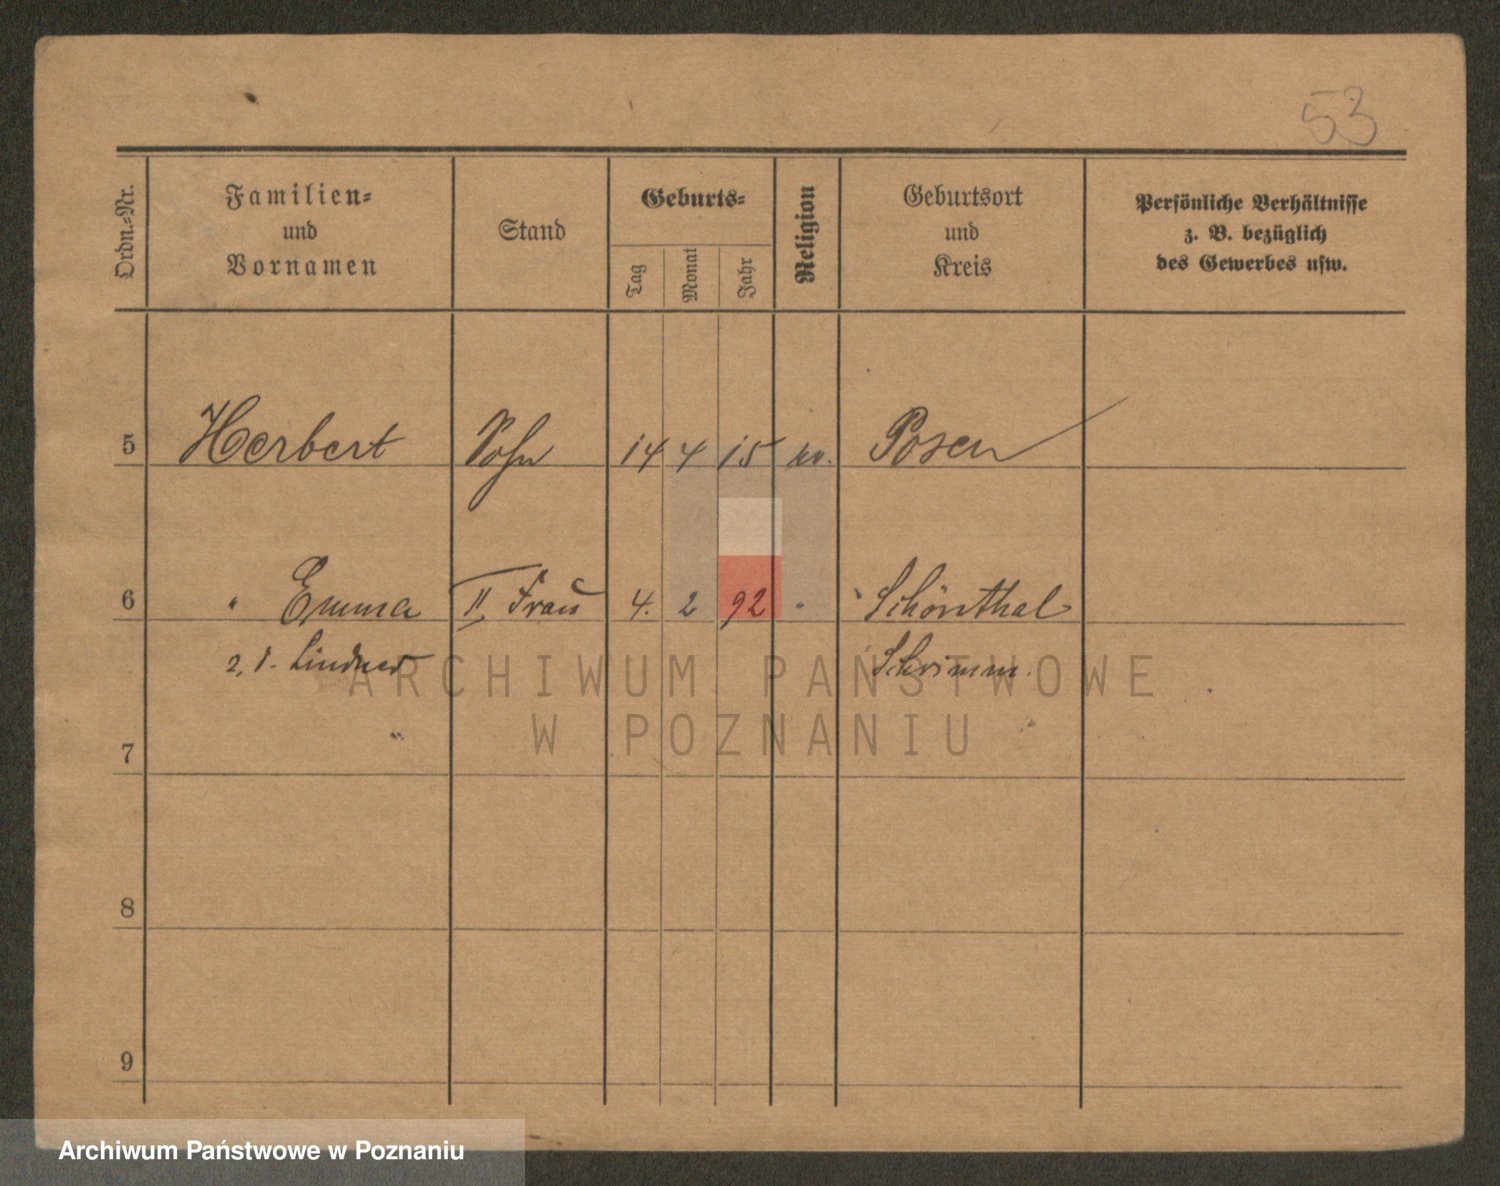 53
Ordn.-Nr.
Familien-
und
Vornamen
Stand
Geburts-
Tag
Monat
Jahr
Religion
Geburtsort
und
Kreis
Persönliche Verhältnisse
z. B. bezüglich
des Gewerbes usw.
5 Herbert Sohn 14 4 15 Posen
6 " Emma II Frau 4. 2 92 " Schönthal
Lindner Schrimm.
7
8
9
ARCHIWUM PAŃSTWOWE
W POZNANIU
Archiwum Państwowe w Poznaniu